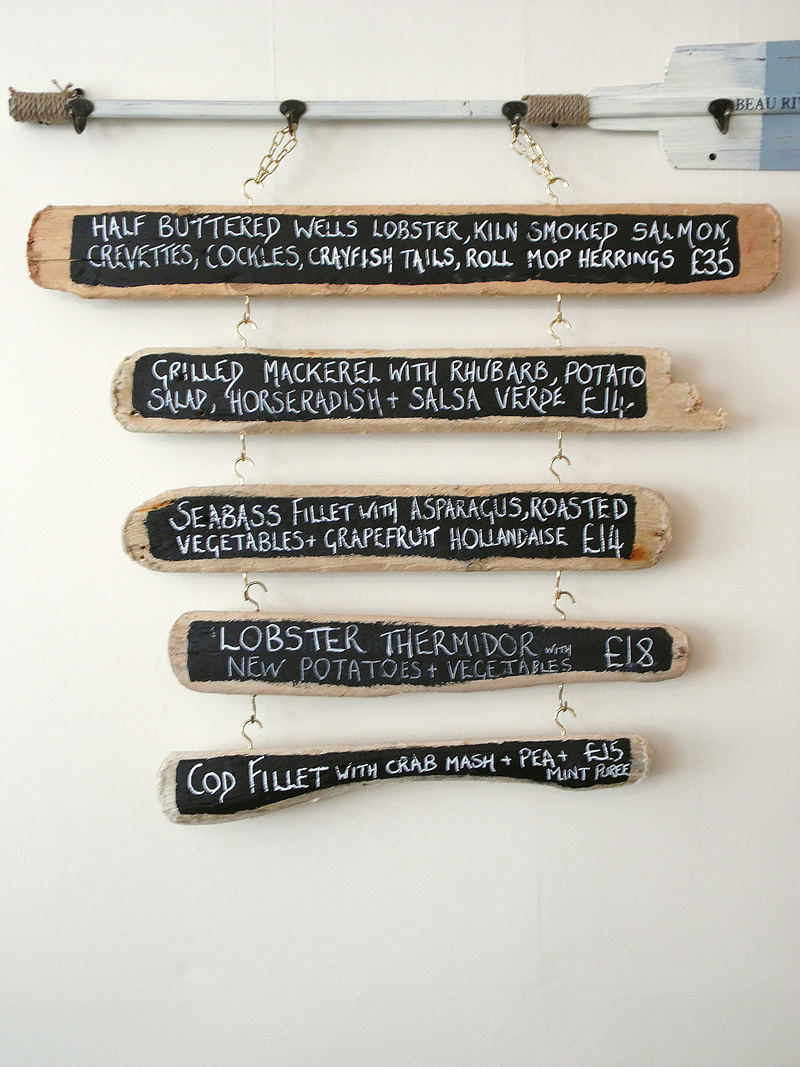 BEAU RI
HALF BUTTERED WELLS LOBSTER, KILN SMOKED SALMON,
CREVETTES, COCKLES, CRAYFISH TAILS, ROLL MOP HERRINGS £35
GRILLED MACKEREL WITH RHUBARB, POTATO
SALAD, HORSERADISH + SALSA VERDE £14
SEABASS FILLET WITH ASPARAGUS, ROASTED
VEGETABLES + GRAPEFRUIT HOLLANDAISE £14
LOBSTER THERMIDOR WITH £18
NEW POTATOES + VEGETABLES
COD FILLET WITH CRAB MASH + PEA + £15
MINT PUREE